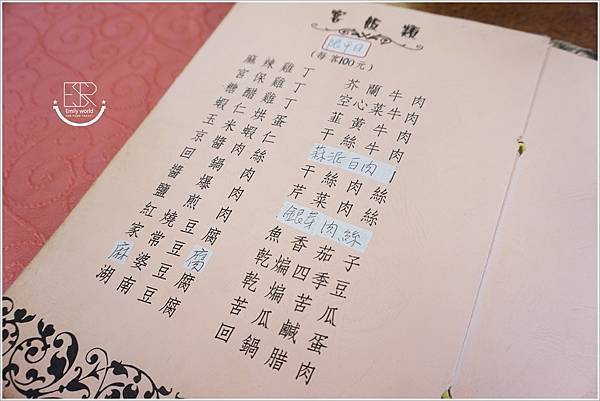 客飯類
限平日
(每客100元)
麻辣雞丁
宮保雞丁
糖醋雞丁
蝦仁烘蛋
玉米蝦仁
京醬肉絲
回鍋肉
醬爆肉
鹽煎肉
紅燒豆腐
家常豆腐
麻婆豆腐
湖南豆腐
芥蘭牛肉
空心菜牛肉
韭黃牛肉
干絲牛肉
蒜泥白肉
干絲肉絲
芹菜肉絲
銀芽肉絲
魚香茄子
乾煸四季豆
乾煸苦瓜
苦瓜鹹蛋
回鍋臘肉
Emily world